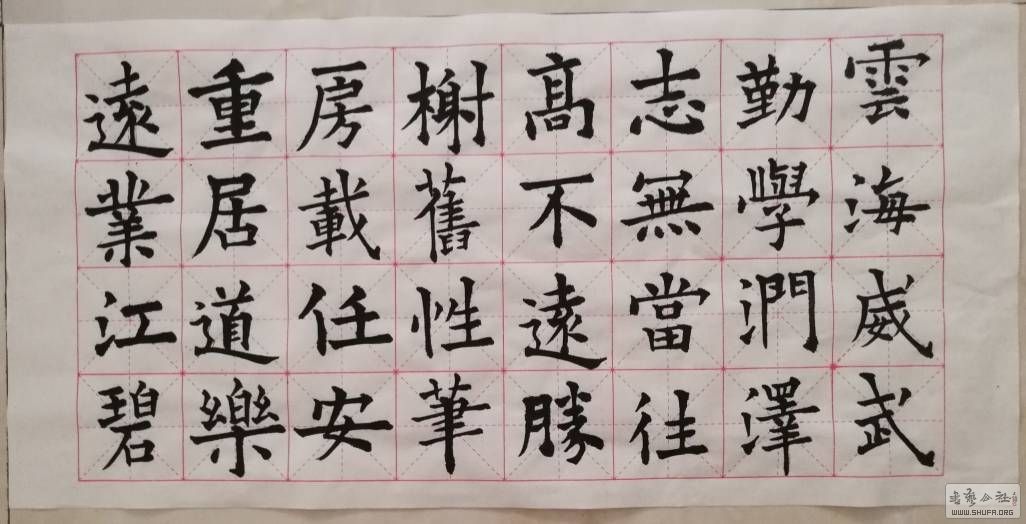 雲海威武
勤學澗澤
志無當往
高不遠勝
榭舊性筆
房載任安
重居道樂
遠業江碧
書藝公社
WWW.SHUFA.ORG